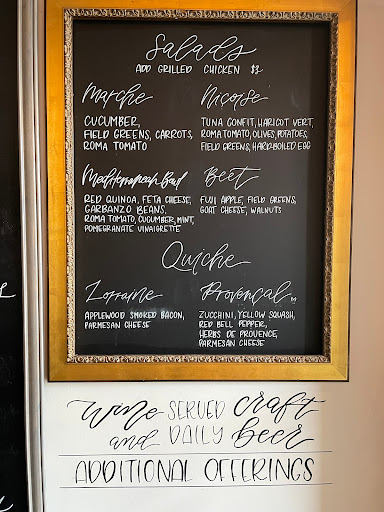 Salads
ADD GRILLED CHICKEN $3
Marche
CUCUMBER,
FIELD GREENS, CARROTS,
ROMA TOMATO
Niçoise
TUNA CONFIT, HARICOT VERT,
ROMA TOMATO, OLIVES, POTATOES,
FIELD GREENS, HARD BOILED EGG
Mediterranean Bowl
RED QUINOA, FETA CHEESE,
GARBANZO BEANS,
ROMA TOMATO, CUCUMBER, MINT,
POMEGRANATE VINAIGRETTE
Beet
FUJI APPLE, FIELD GREENS,
GOAT CHEESE, WALNUTS
Quiche
Lorraine
APPLEWOOD SMOKED BACON,
PARMESAN CHEESE
Provençal
ZUCCHINI, YELLOW SQUASH,
RED BELL PEPPER,
HERBS DE PROVENCE,
PARMESAN CHEESE
wine SERVED craft
and DAILY beer
ADDITIONAL OFFERINGS